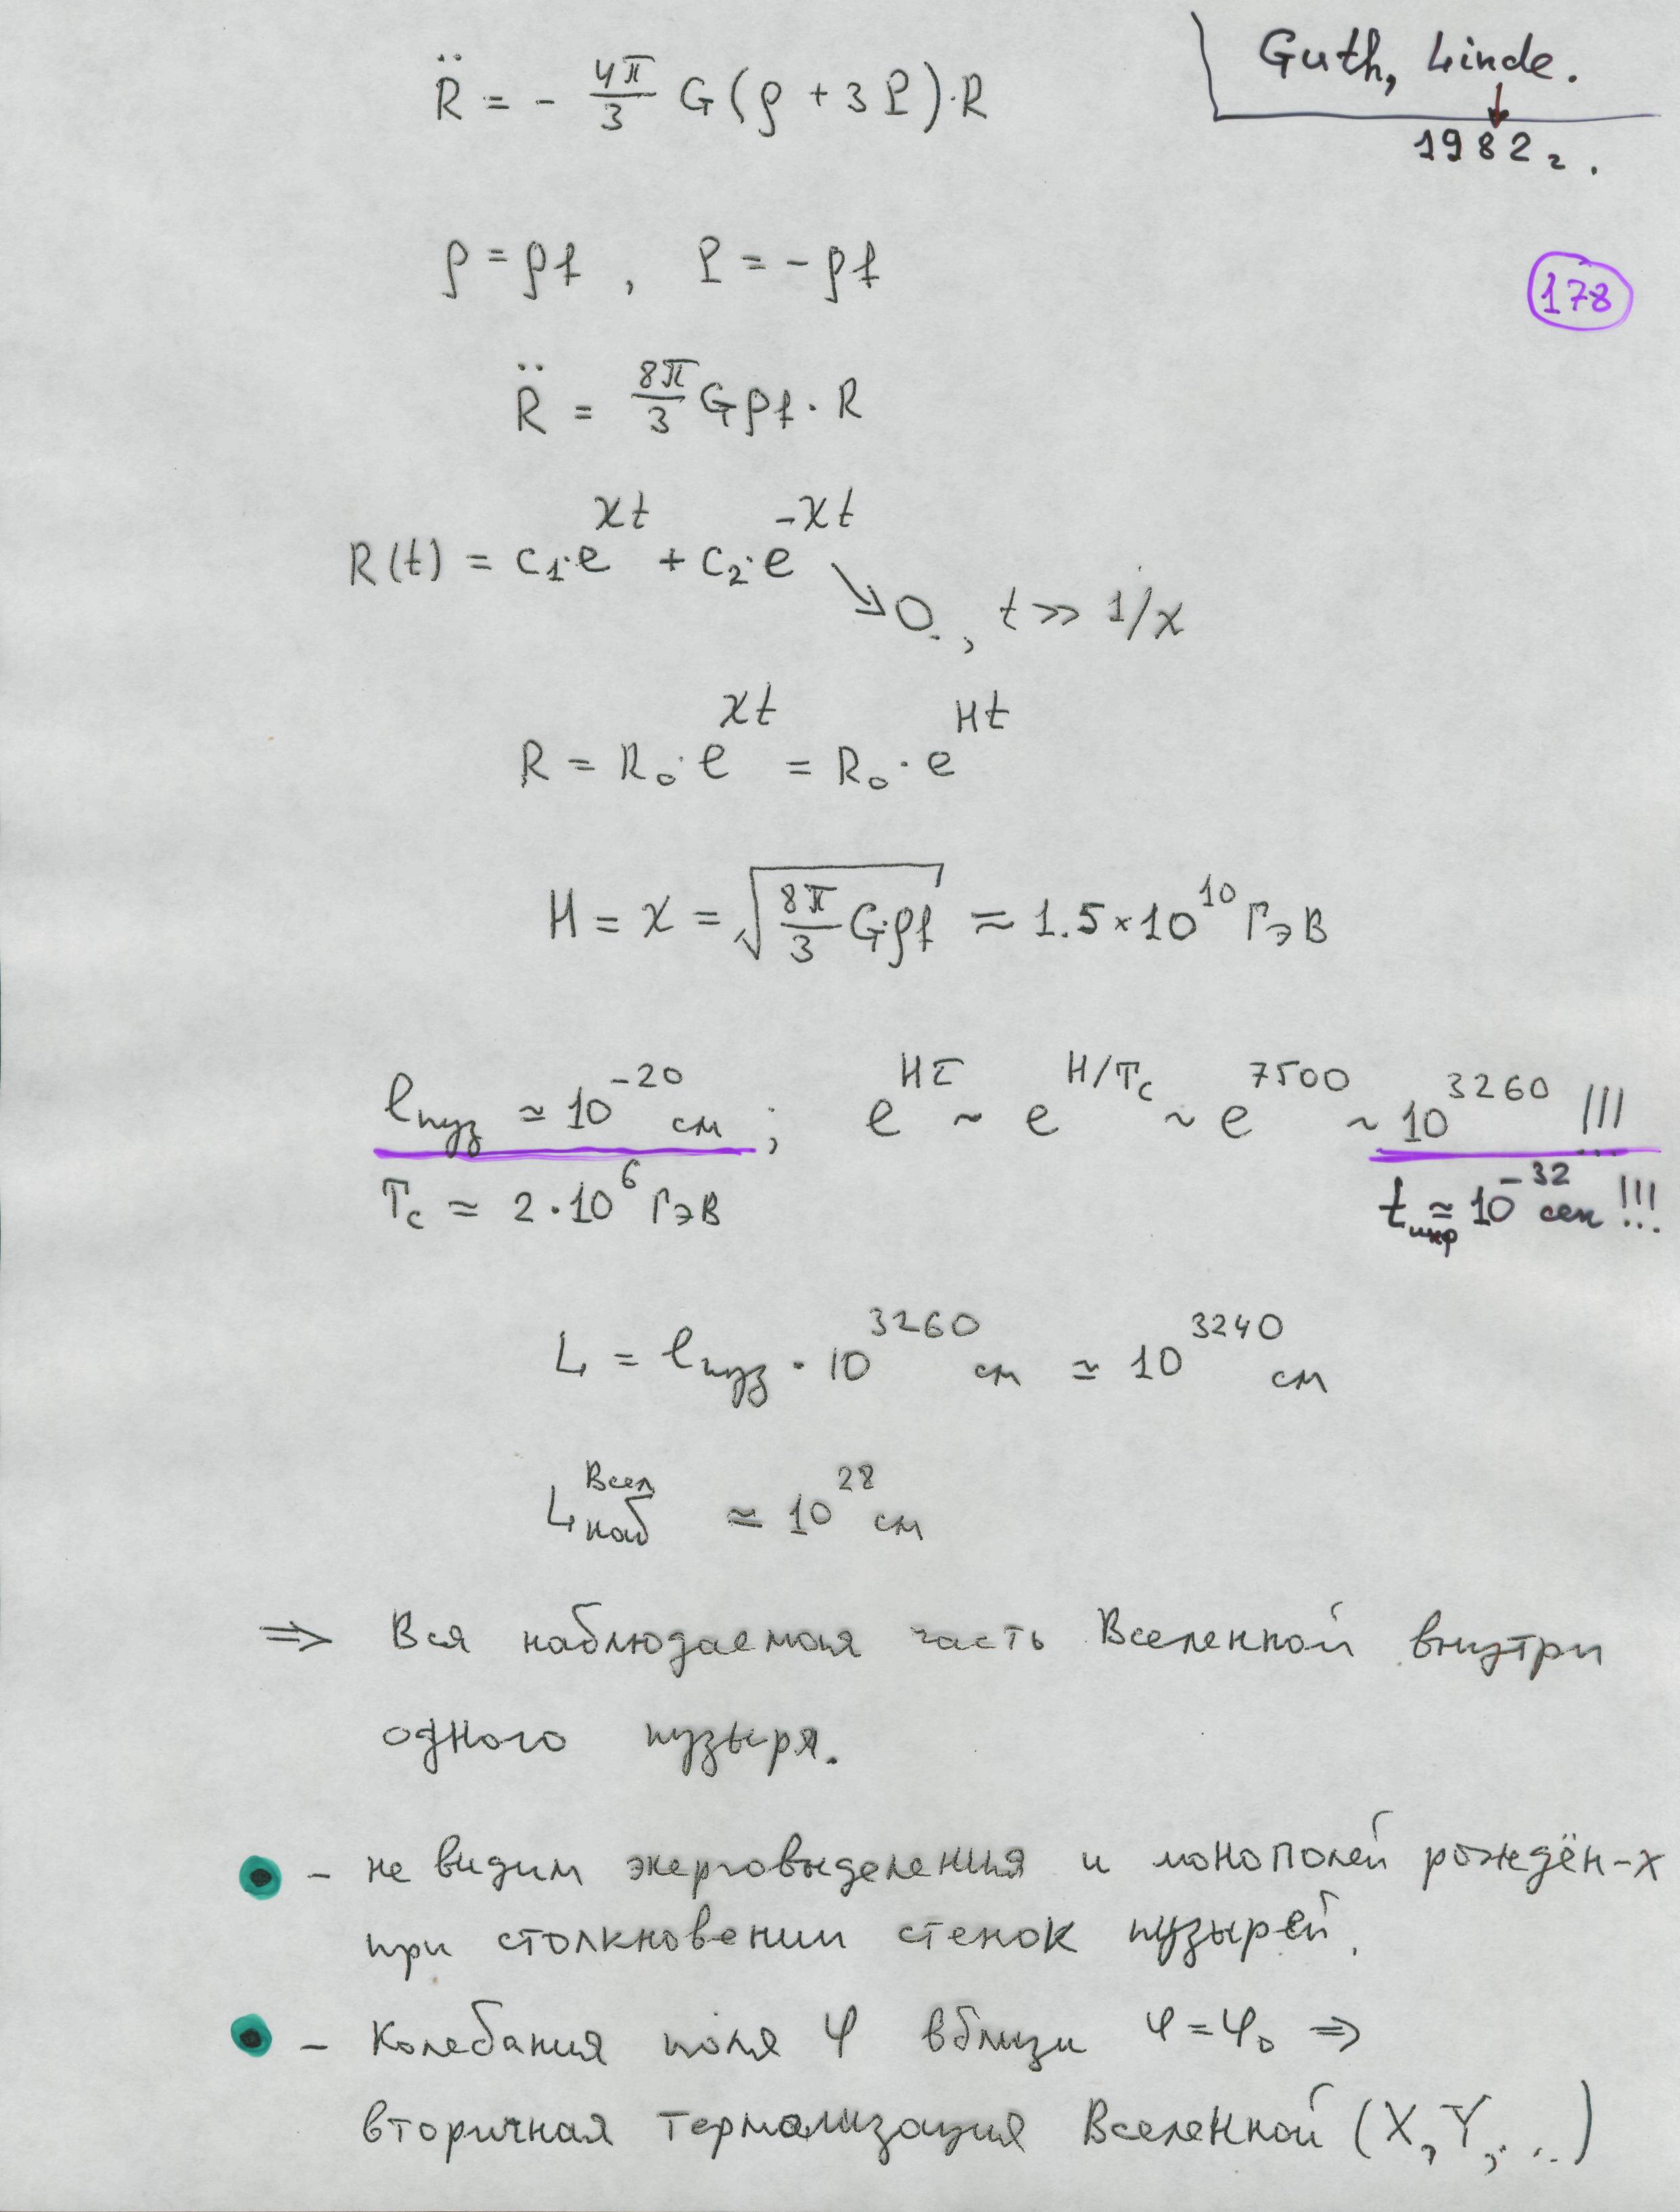 Guth, Linde.
1982 г.
R̈ = - 4π/3 G(ρ + 3P)·R
178
ρ = ρf , P = -ρf
R̈ = 8π/3 Gρf · R
R(t) = c₁·e^{χt} + c₂·e^{-χt} ↘ 0, t >> 1/χ
R = R₀·e^{χt} = R₀·e^{Ht}
H = χ = √(8π/3 Gρf) ≈ 1.5×10^{10} ГэВ
lпуз ≃ 10^{-20} см ; e^{Hτ} ~ e^{H/Tc} ~ e^{7500} ~ 10^{3260} !!!
Tc ≃ 2·10^{6} ГэВ t инф ≃ 10^{-32} сек !!!
L = lпуз · 10^{3260} см ≃ 10^{3240} см
L Всел наб ≃ 10^{28} см
⇒ Вся наблюдаемая часть Вселенной внутри
одного пузыря.
- не видим энерговыделения и монополей рождён-х
при столкновении стенок пузырей.
- Колебания поля φ вблизи φ = φ₀ ⇒
вторичная термализация Вселенной (X, Y, ...)